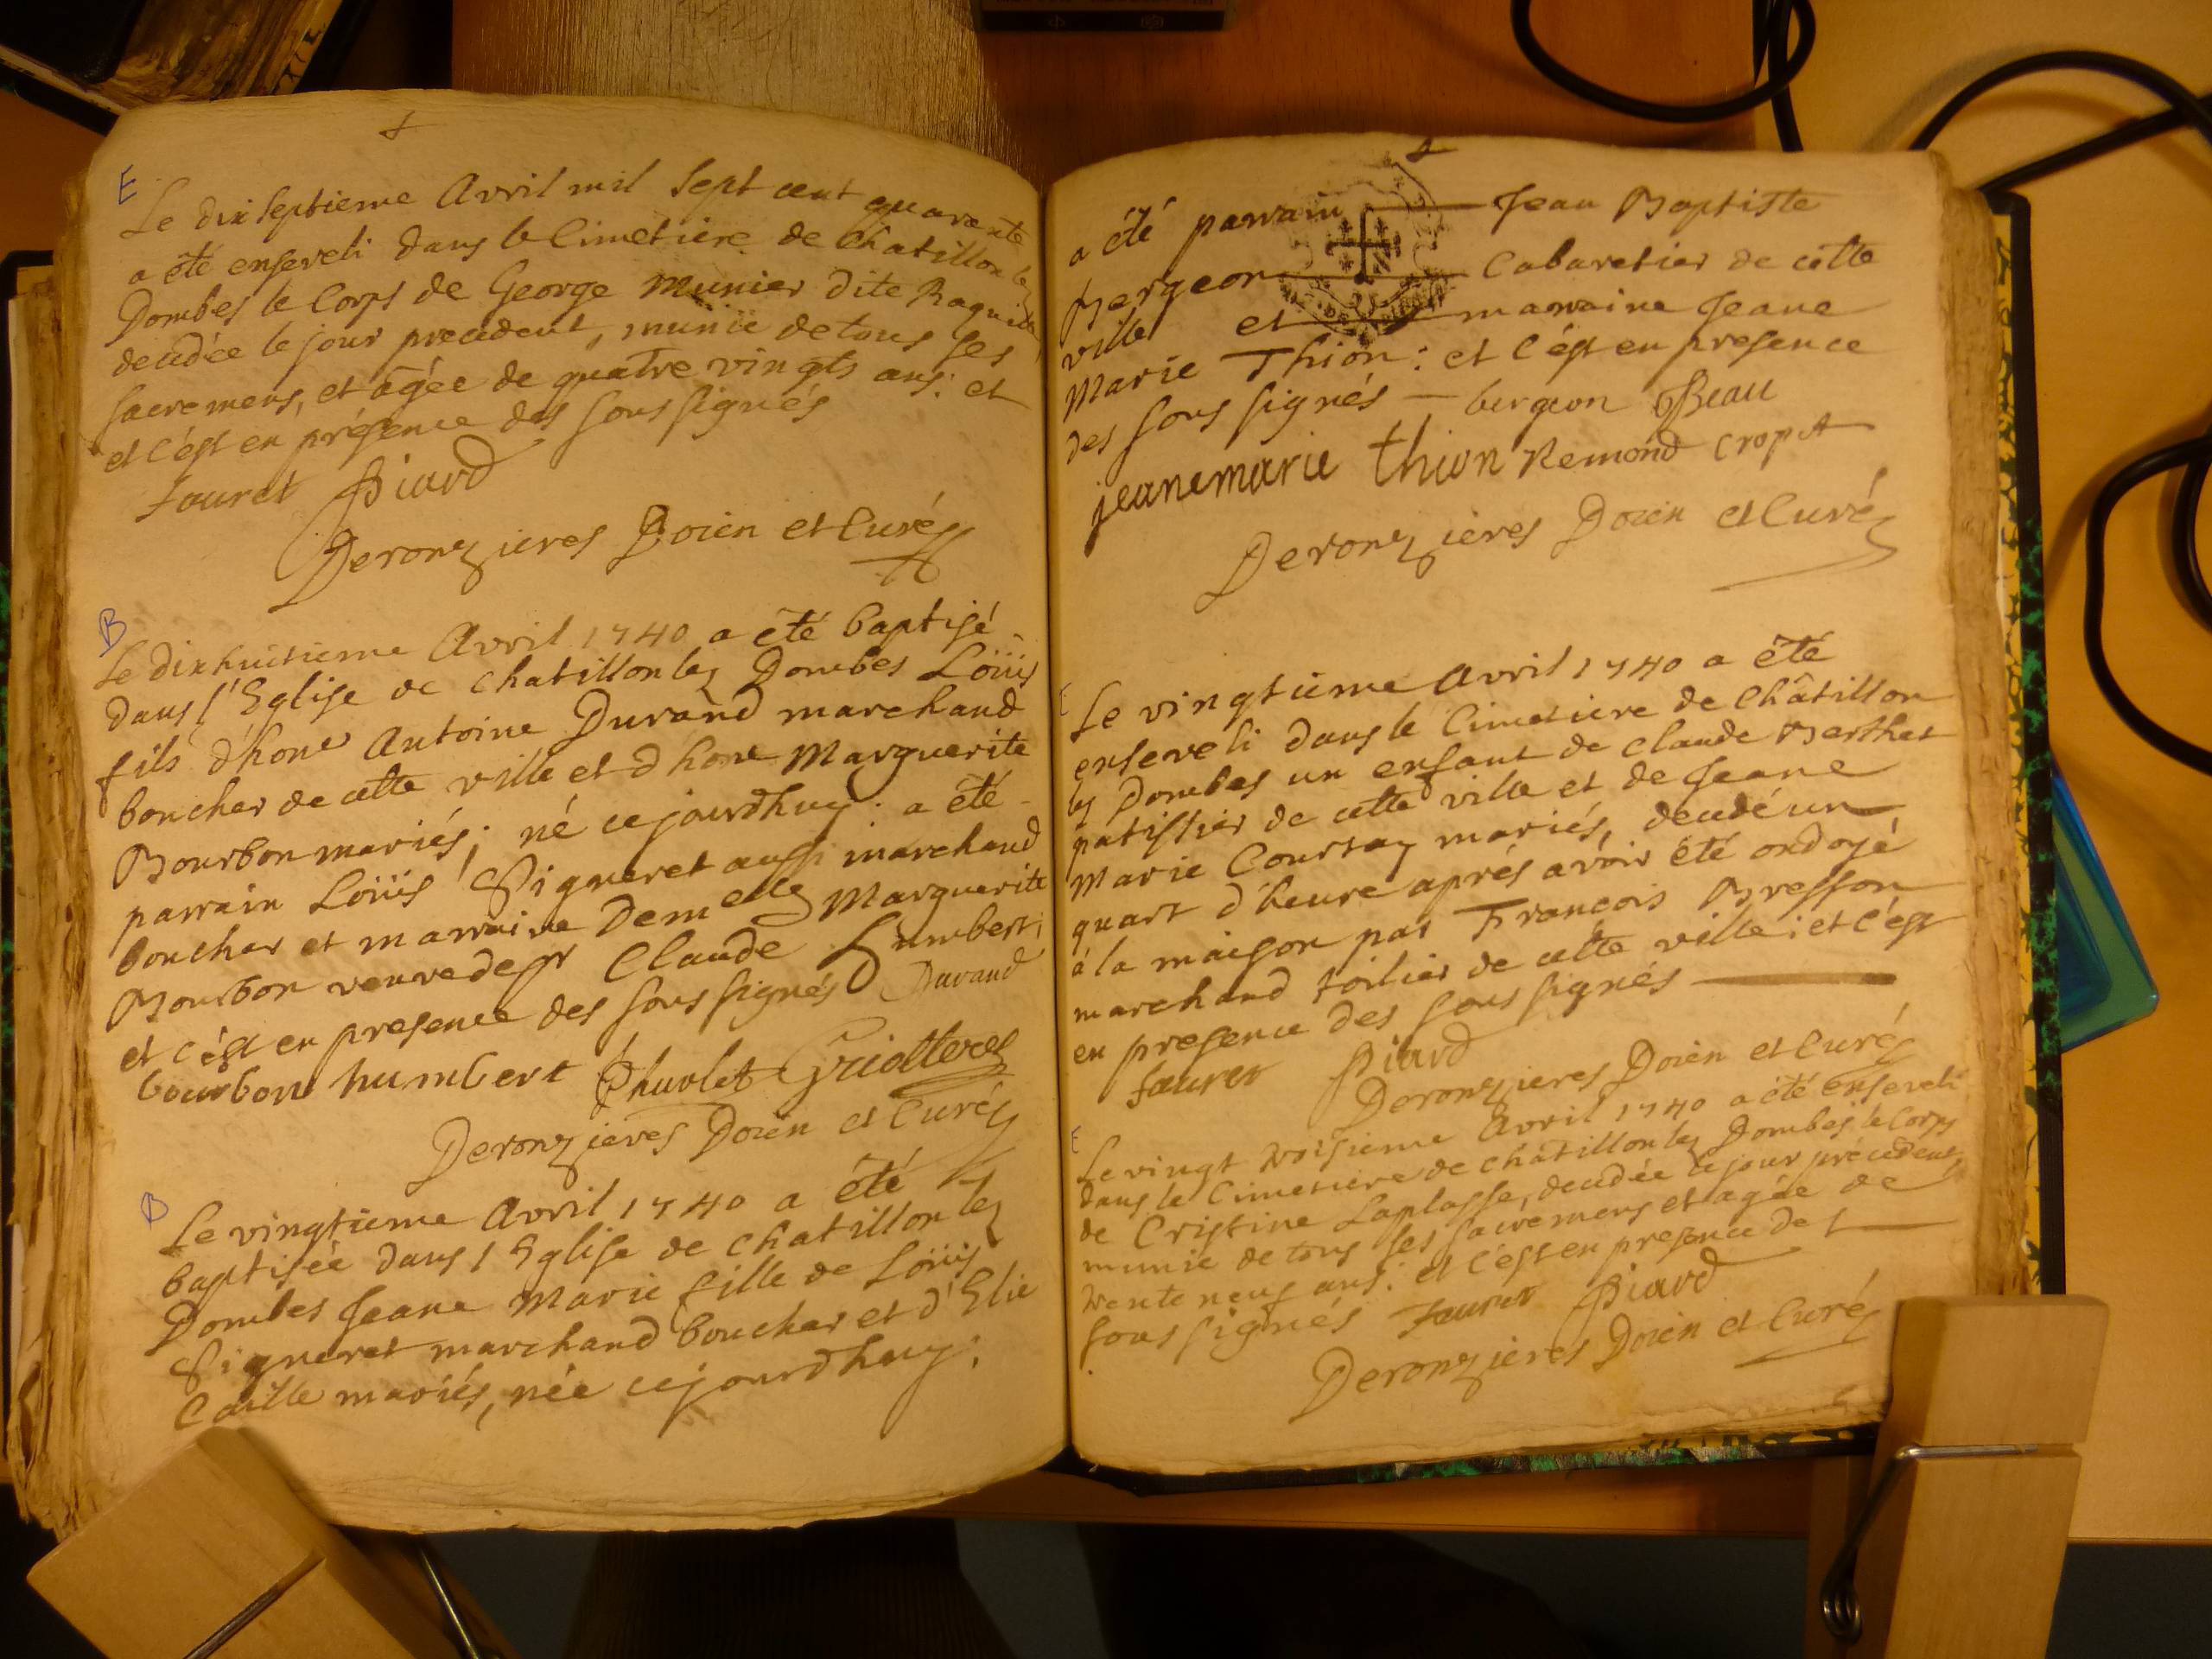 E
Le dixseptieme Avril mil Sept cent quarante
a été enseveli dans le Cimetiere de Chatillon lez
Dombes le Corps de George Munier dite Raquin
decedée le jour precedent, munie de tous ses
sacremens, et âgée de quatre vingts ans: et
et c'est en présence des sous signés
fauret Biard
Deronzieres Doien et Curé
B
Le dixhuitieme Avril 1740 a été baptisé
dans l'Eglise de Chatillon lez Dombes Loüis
fils d'hone Antoine Durand marchand
boucher de cette ville et d'hone Marguerite
Bourbon mariés; né cejourdhuy: a été
parrain Loüis Signeret aussi marchand
boucher et marraine Demelle Marguerite
Bourbon veuve de sr Claude Humbert:
et c'est en presence des sous signés Durand
bourbon humbert Chuvlet Griotteres
Deronzieres Doien et Curé
B
Le vingtieme Avril 1740 a été
baptisée dans l'Eglise de Chatillon lez
Dombes Jeane Marie fille de Loüis
Signeret marchand boucher et d'Elie
Caille mariés, née cejourdhuy:
a été parrain Jean Baptiste
Bergeon Cabaretier de cette
ville et marraine Jeane
Marie Thion: et c'est en presence
des sous signés bergeon Beau
jeanemarie thion Remond Cropet
Deronzieres Doien et Curé
E
Le vingtieme Avril 1740 a été
enseveli dans le Cimetiere de Châtillon
lez Dombes un enfant de Claude Berthet
patissier de cette ville et de Jeane
Marie Courtoy mariés, decedé un
quart d'heure aprés avoir été ondoyé
à la maison par François Bresson
marchand toilier de cette ville: et c'est
en presence des sous signés
fauret Biard
Deronzieres Doien et Curé
E
Le vingt troisieme Avril 1740 a été enseveli
dans le Cimetiere de Châtillon lez Dombes le Corps
de Cristine Laplasse, decedée le jour précedent,
munie de tous ses sacremens et agée de
trente neuf ans: et c'est en presence des
sous signés fauret Biard
Deronzieres Doien et Curé